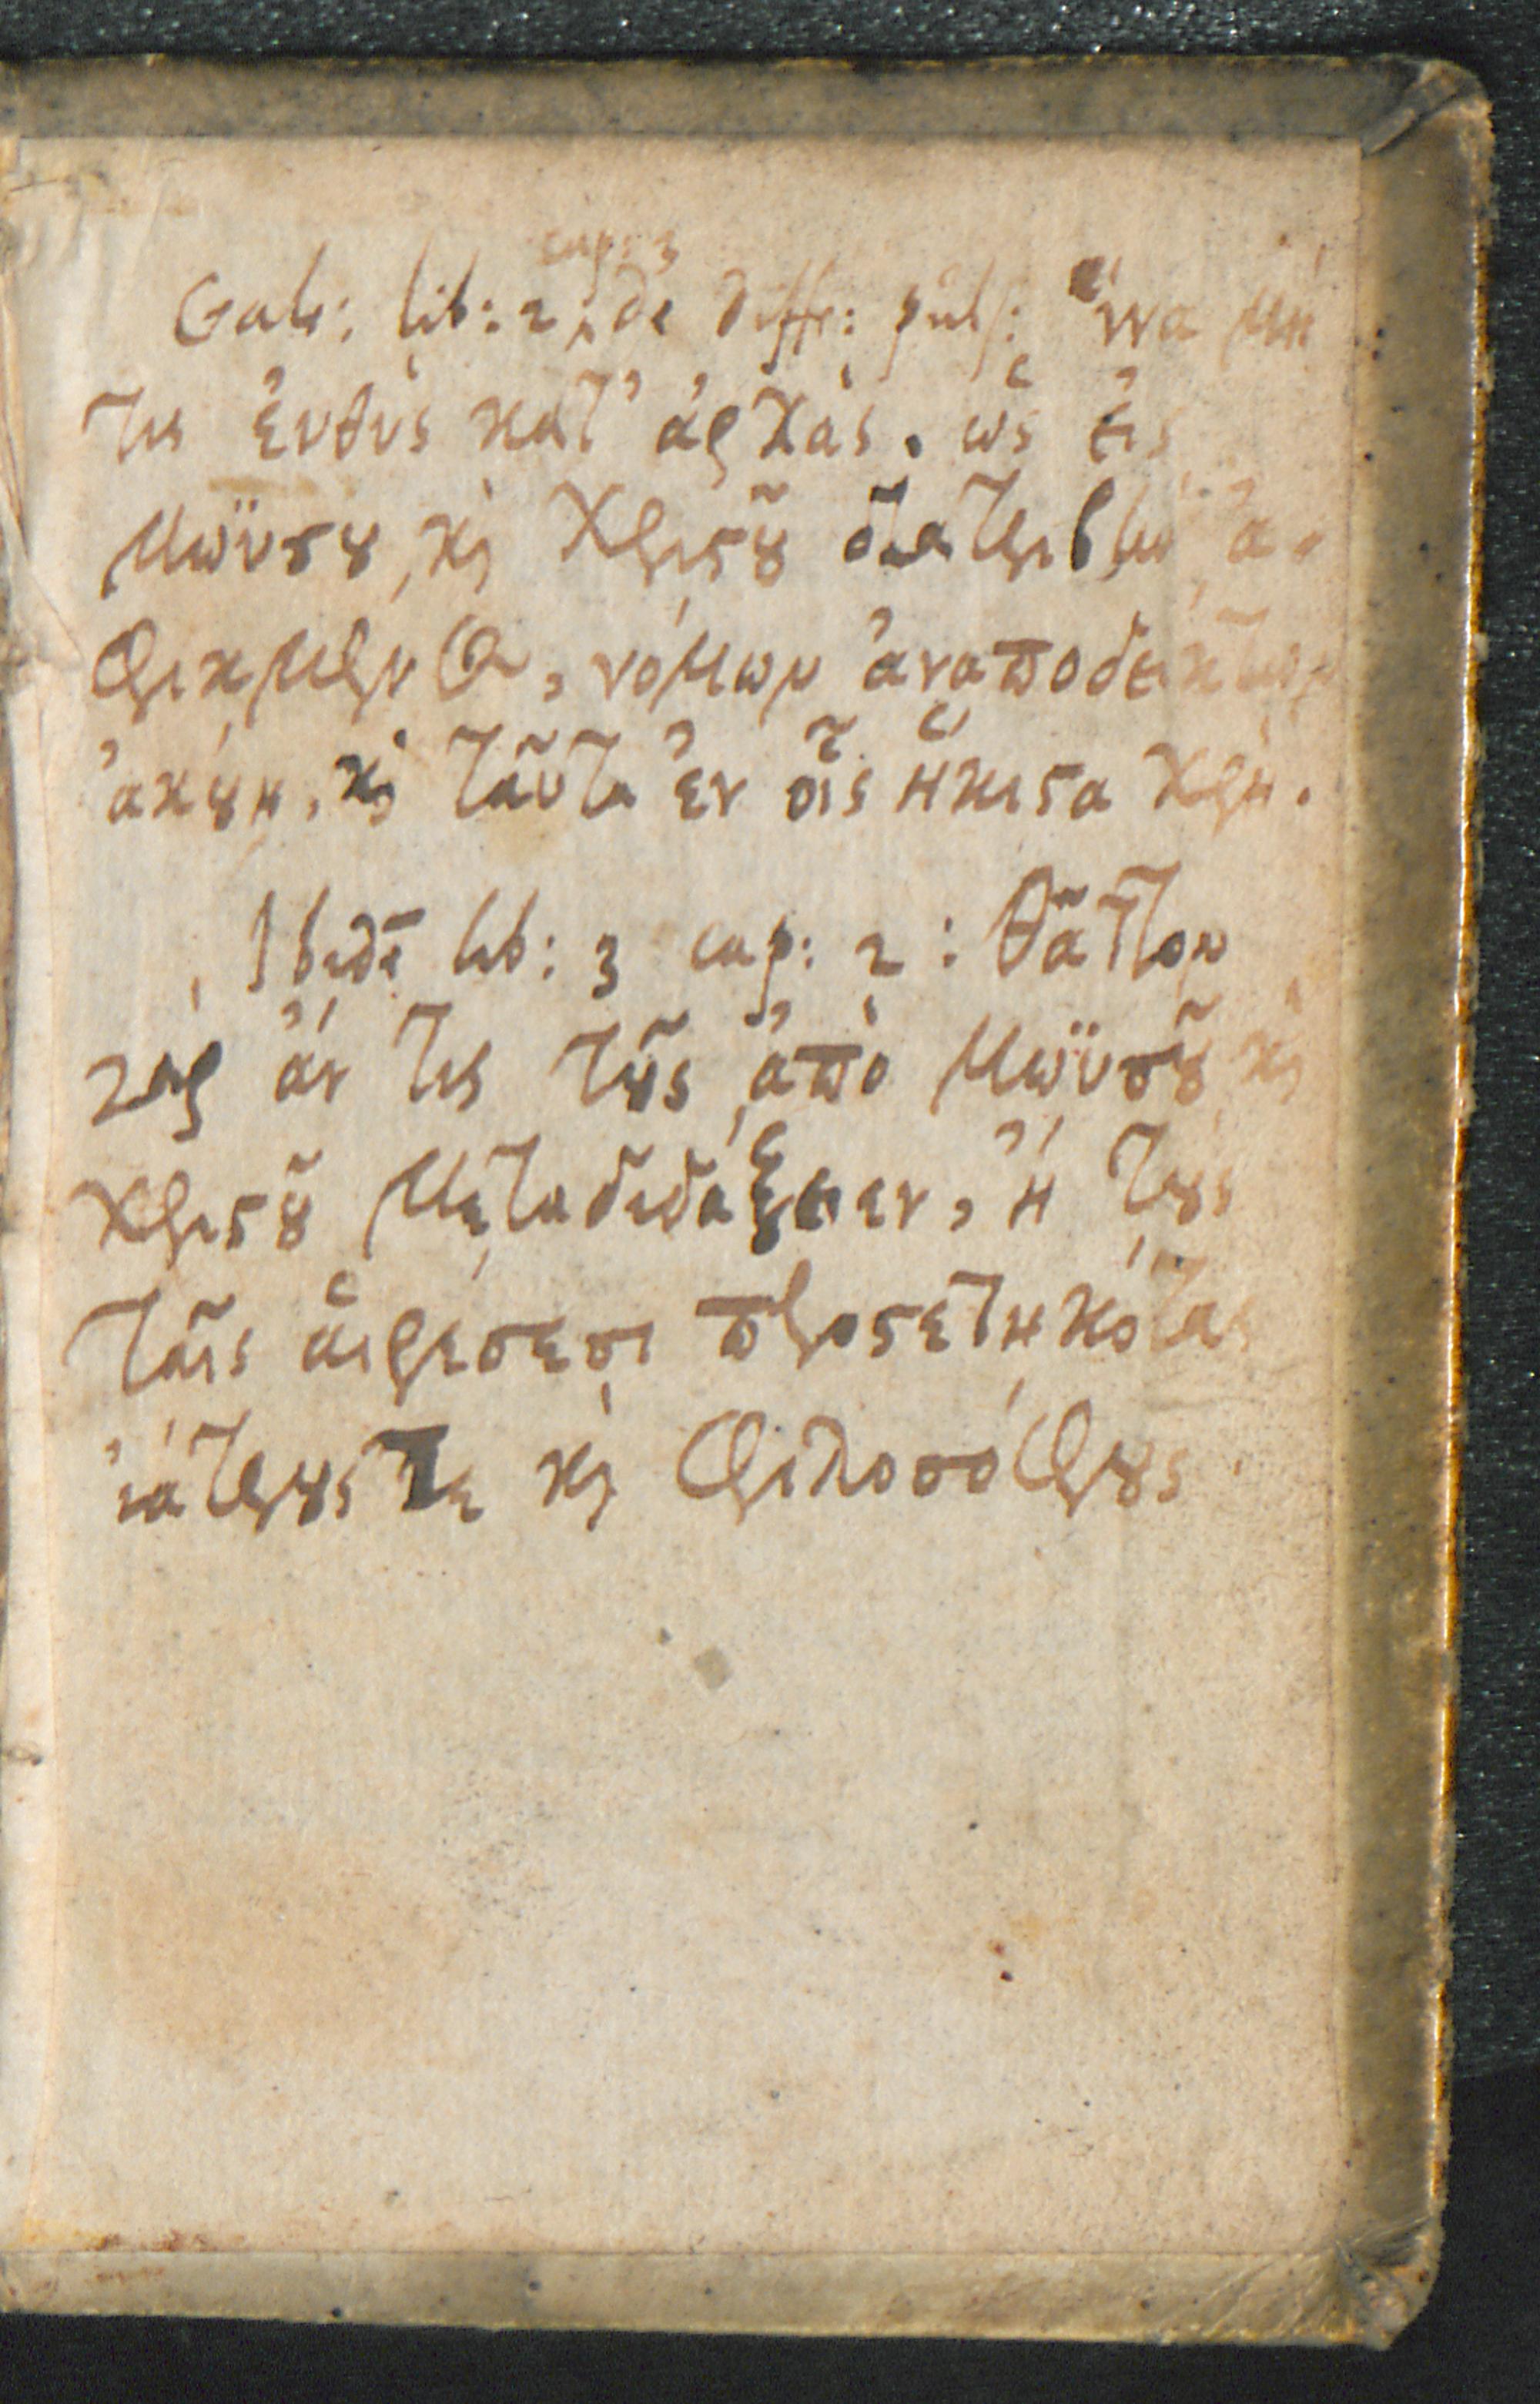 cap: 3
Gale: lib: 2 de diffr: puls: ἵνα μή
τις ἐυθὺς κατ' ἀρχὰς, ὡς ἐις
Μωϋσου κ̀ Χριστοῦ διατριβὴν ἀ-
φικμένος, νόμων ἀναποδείκτων
ἀκούη, κ̀ ταῦτα ἐν οἷς ἥκιστα χρή.
Ibidē lib: 3 cap: 2: θᾶττον
γὰρ ἄν τις τοῦς ἀπὸ Μωϋσοῦ κ̀
Χριστοῦ μεταδιδάξειεν, ἤ τους
ταῖς ἁιρέσεσι προστετηκότας
ἰάτρους τε κ̀ φιλοσόφους